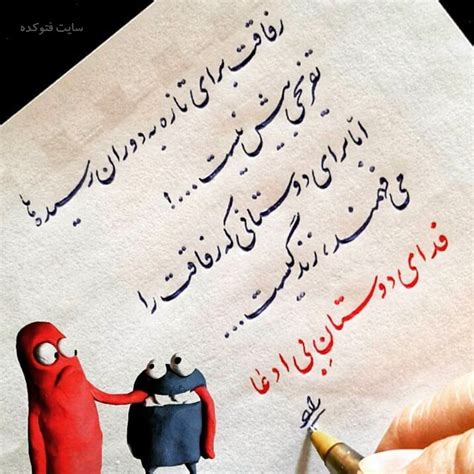 سایت فتوکده
رفاقت برای تازه به دوران رسیده ها
تفریحی بیش نیست...!
اما برای دوستانی که رفاقت را
می فهمند، زندگیست...
فدای دوستانِ بی ادعا